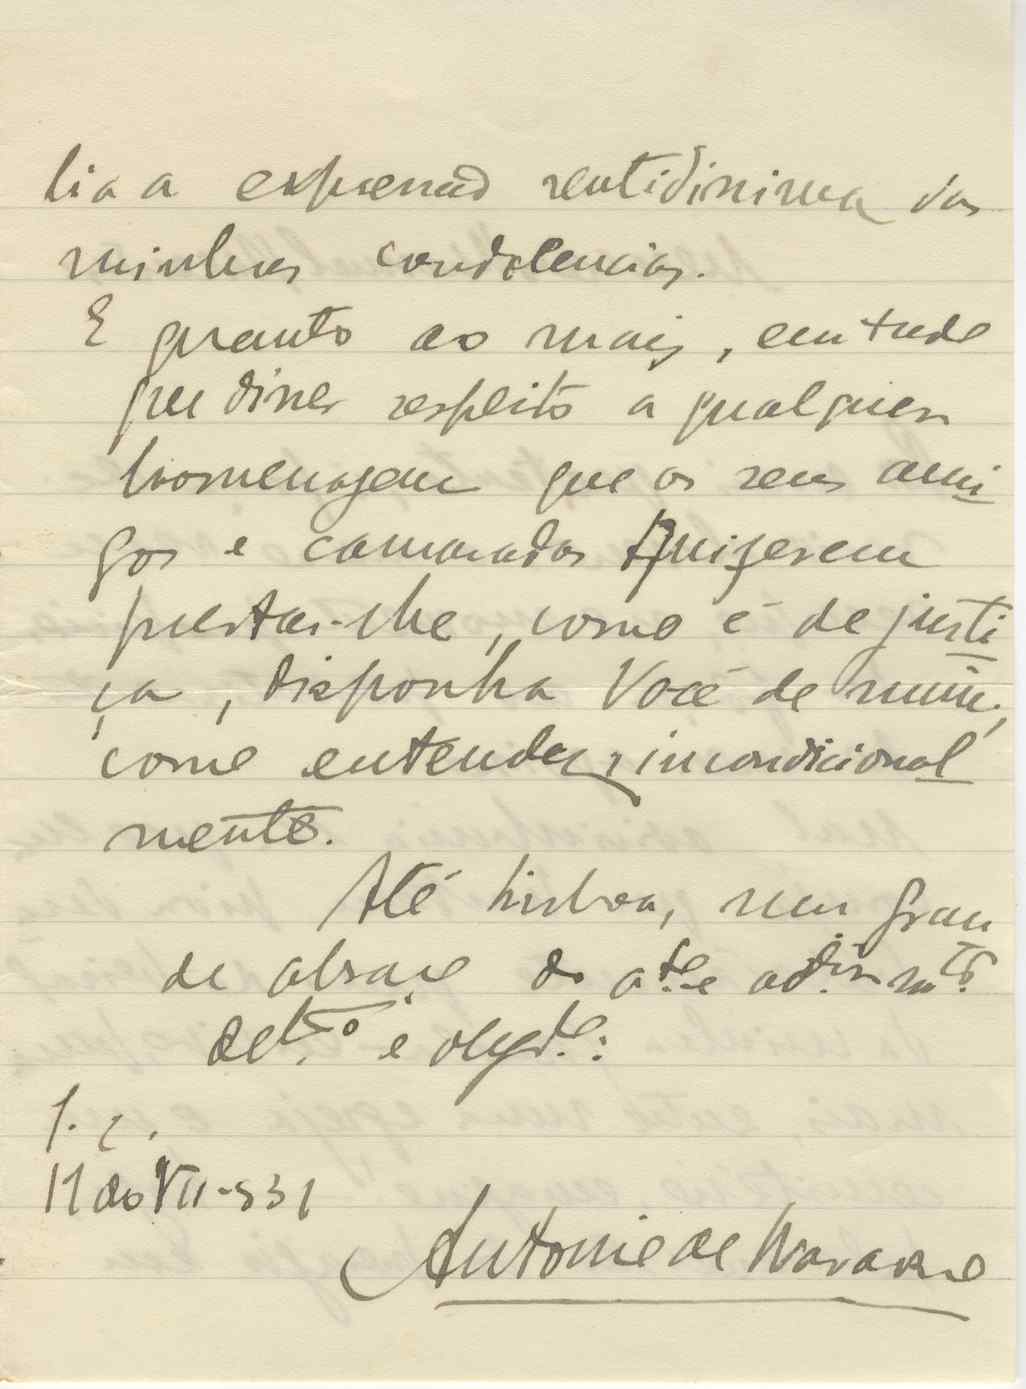 lia a expressão sentidissima das
minhas condolencias.
E quanto ao mais, em tudo
que disser respeito a qualquer
homenagem que os seus ami
gos e camaradas quiserem
prestar-lhe, como é de justi
ça, disponha Você de mim,
como entender, incondicional
mente.
Até Lisboa, num gran
de abraço do
e
11 do VII-931
Antonio de Navarro